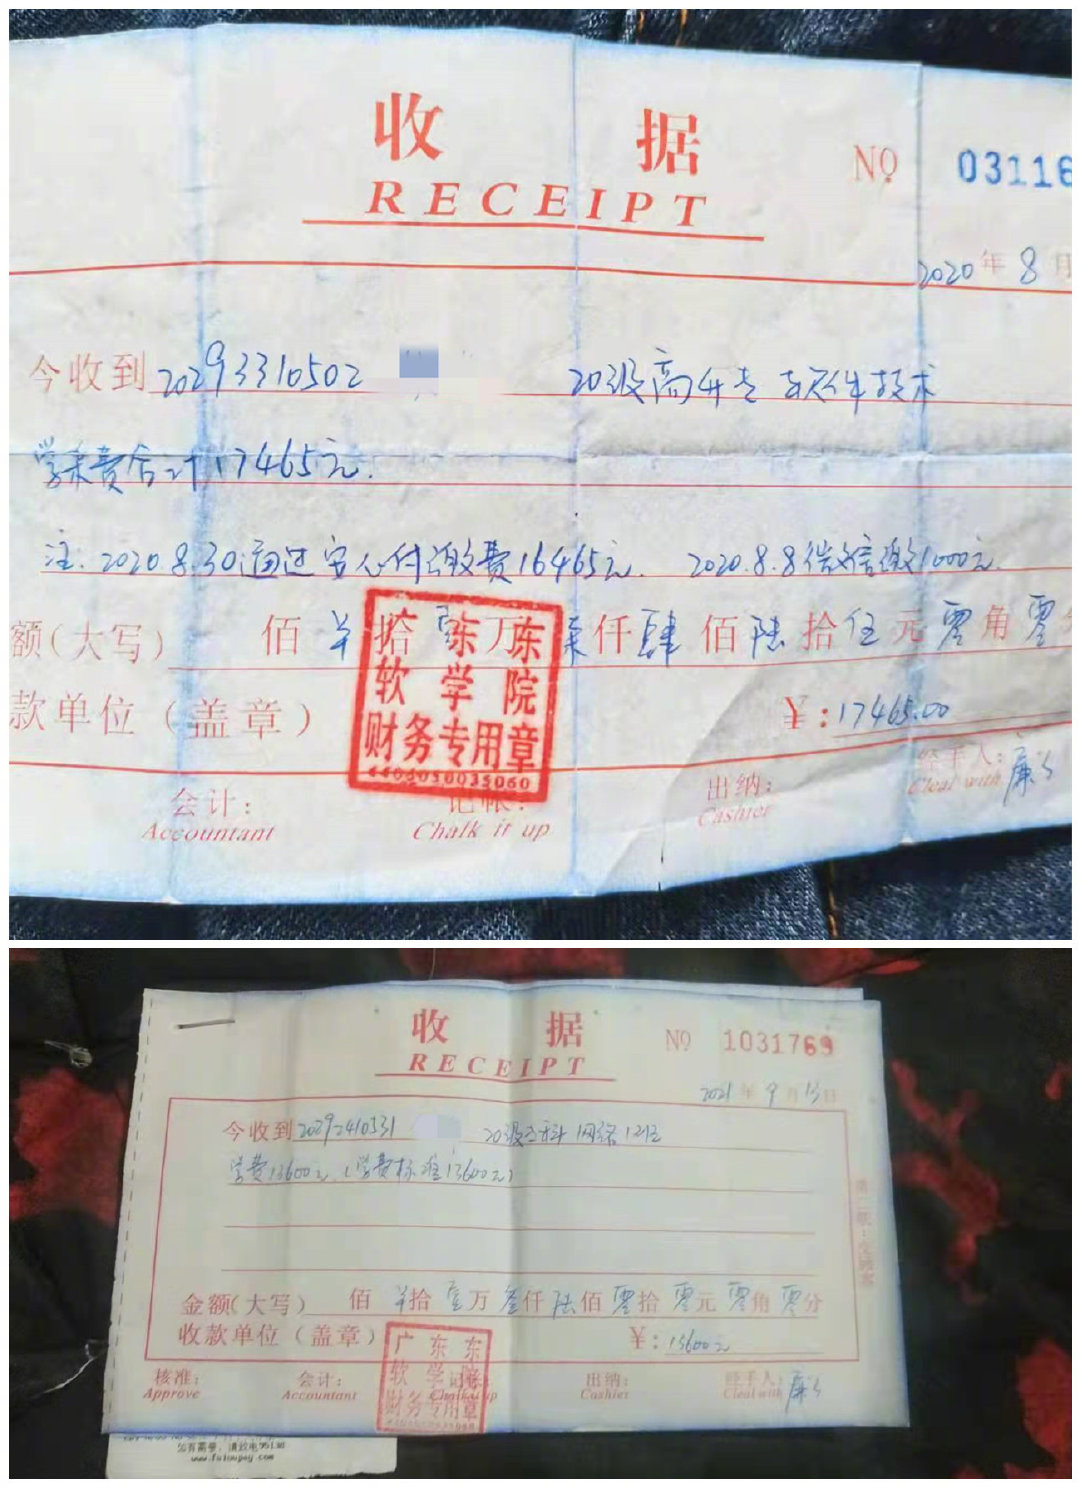 收 据
RECEIPT
№ 03116
2020年8月
今收到 20293310502 20级高升专 软件技术
学杂费合计17465元.
注:2020.8.30通过 缴费16465元. 2020.8.8微信缴1000元.
额(大写) 佰 拾 壹万 柒仟肆佰陆拾伍元零角零
款单位(盖章) ¥:17465.00
广东东
软学院
财务专用章
4402050035060
会计: 记帐: 出纳: 经手人:
Accountant Chalk it up Cashier Cleal with
收 据
RECEIPT
№ 1031769
2021年9月13日
今收到 20292410331 20级专科 网络
学费13600元.(学费标准13600元)
第二联:交顾客
金额(大写) 佰 拾壹万叁仟陆佰零拾零元零角零分
收款单位(盖章) ¥:13600元
广东东
软学院
财务专用章
核准: 会计: 记帐: 出纳: 经手人:
Approve Accountant Chalk it up Cashier Cleal with
如有需要,请致电95138
www.fuioupay.com